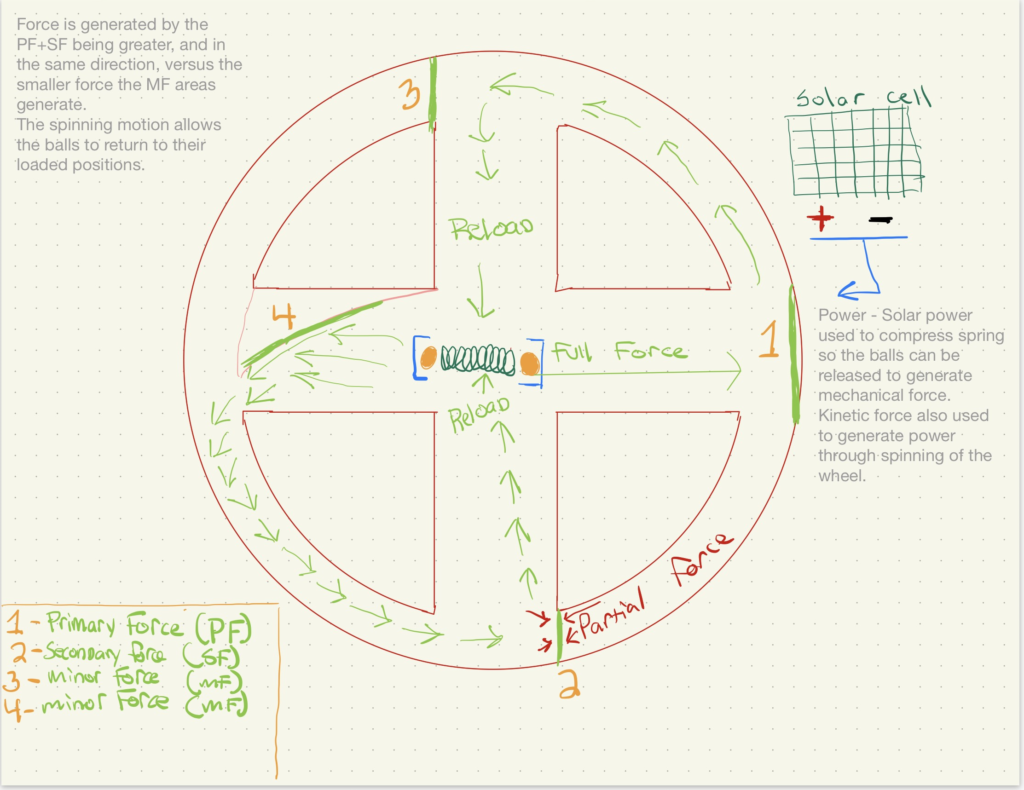 Force is generated by the
PF+SF being greater, and in
the same direction, versus the
smaller force the MF areas
generate.
The spinning motion allows
the balls to return to their
loaded positions.
3
Solar cell
+ -
Reload
4
Full Force
1
Reload
Power - Solar power
used to compress spring
so the balls can be
released to generate
mechanical force.
Kinetic force also used
to generate power
through spinning of the
wheel.
Partial Force
2
1 - Primary Force (PF)
2 - Secondary force (SF)
3 - minor force (MF)
4 - minor Force (MF)